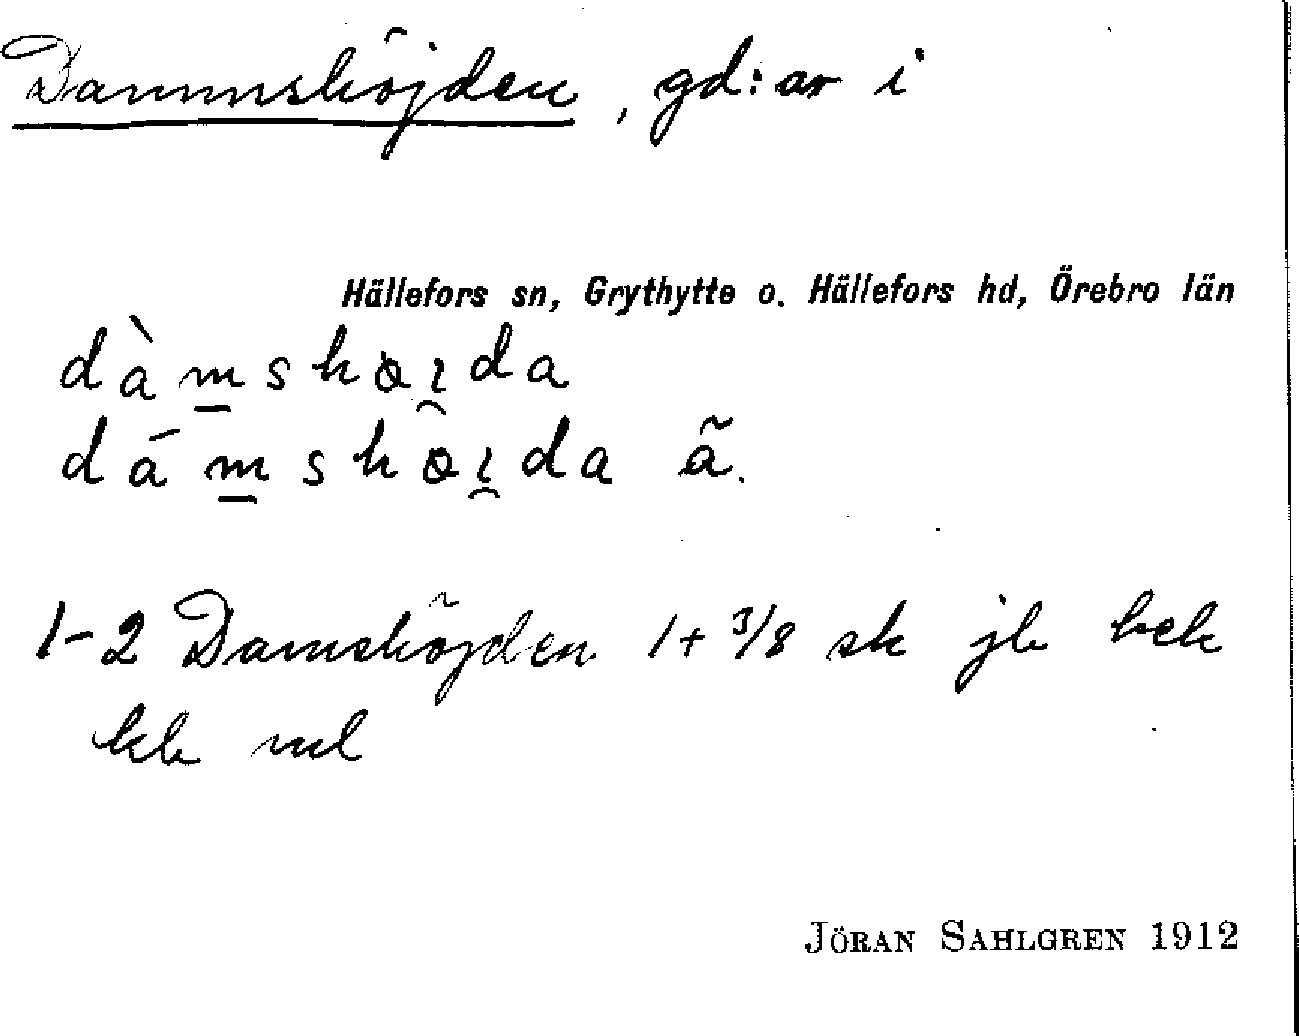 Dammshöjden, gd:ar i
Hällefors sn, Grythytte o. Hällefors hd, Örebro län
dàm̲shɵı̯da
dám̲shɵı̯da ã.
1-2 Damshöjden 1+3/8 sk jb kek
kb ml
JÖRAN SAHLGREN 1912